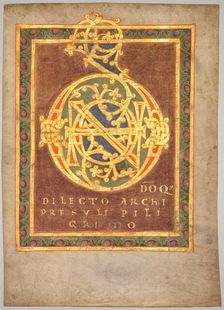 DOQ'
DILECTO ARCHI
PRESULI PILI
GRIMO